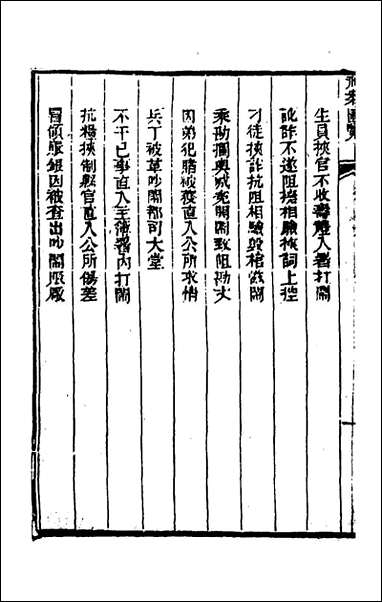 生員挾官不收壽禮入署打鬧
訛詐不遂阻擾相驗挾詞上控
刁徒挾詐抗阻相驗毀棺滋鬧
乘勘攔輿喊冤鬨鬧致阻勘丈
因弟犯賭被獲直入公所求情
兵丁被革吵鬧都司大堂
不干己事直入主簿署內打鬧
抗糧挾制縣官直入公所傷差
冒領賑銀因被查出吵鬧賑廠